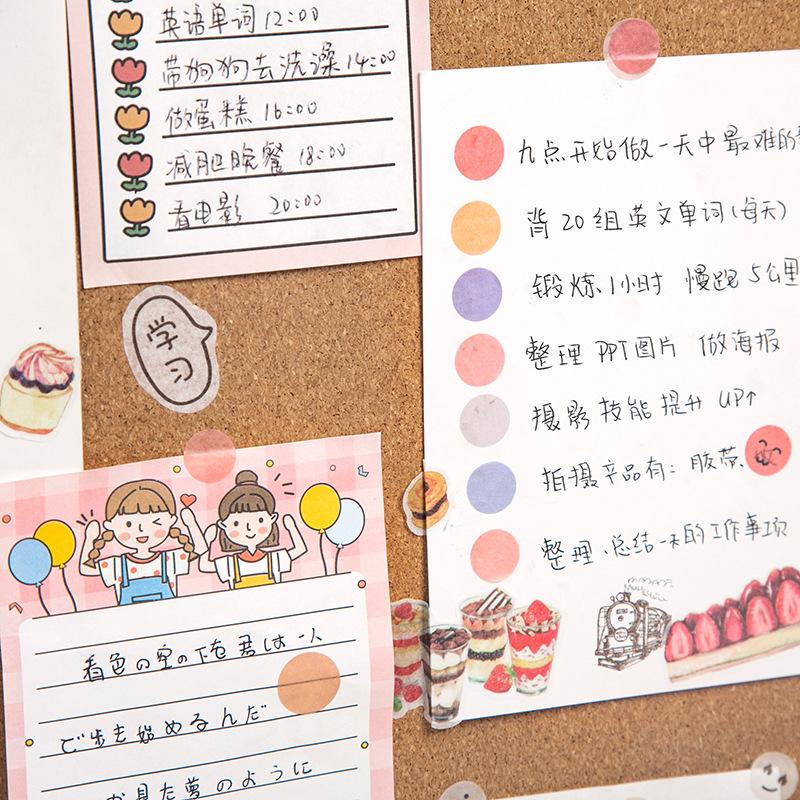 英语单词 12:00
带狗狗去洗澡 14:00
做蛋糕 16:00
减脂晚餐 18:00
看电影 20:00
学习
九点开始做一天中最难的
背 20 组英文单词(每天)
锻炼1小时 慢跑 5公里
整理 PPT图片 做海报
摄影技能提升 UP↑
拍摄产品有: 胶带、
整理、总结一天的工作事项
着色の空の下を君は一人
で歩き始めるんだ
見た夢のように